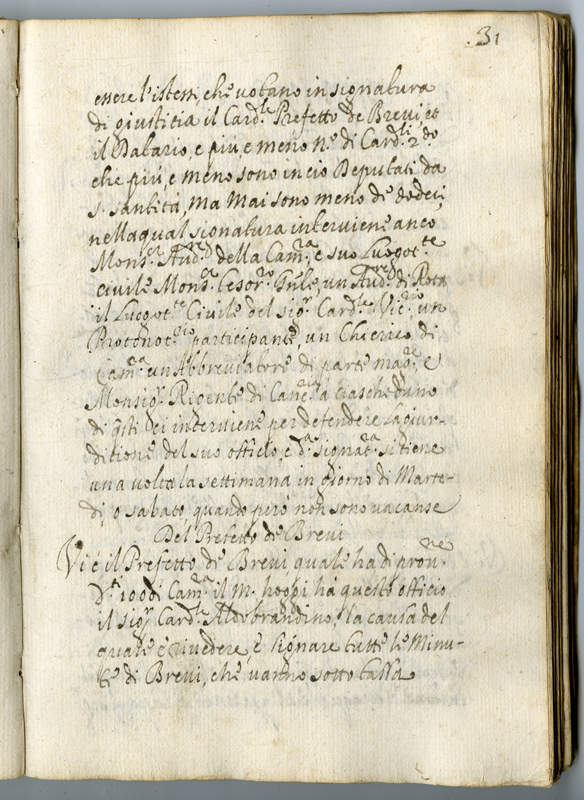 31
essere l'istessi, che votano in signatura
di giustitia il Card.le Prefetto de Brevi, et
il Datario, e più, e meno n.o di Card.li 2.do
che più, e meno sono in cio Deputati da
s. santità, ma mai sono meno de dodeci,
nella qual signatura interviene anco
Mons.r Aud.re della Cam.ra e suo Luogot.te
civile Mons.r Tesor.ro Gnle, un Aud.re di Rota
il Luogot.te Civile del sig.r Card.le Vic.rio un
Protonot.rio participante, un Chierico di
Cam.ra un Abbreviatore di parco mag.re e
Monsig.r Regente di Canc.ria a ciascheduno
di q.sti ei interviene per defendere la giur-
ditione del suo officio, e d.a signat.ra si tiene
una volta la settimana in giorno di Marte-
dì, o sabato quando però non sono vacanse
Del Prefetto de Brevi
Vi è il Prefetto de Brevi, quale ha di prov.ne
D.ti 100 di Cam.ra il m. hoggi ha questo officio
il sig.r Card.le Aldobrandino, la causa del
quale è rivedere, e signare tutte le Minu-
te di Brevi, che vanno sotto tassa